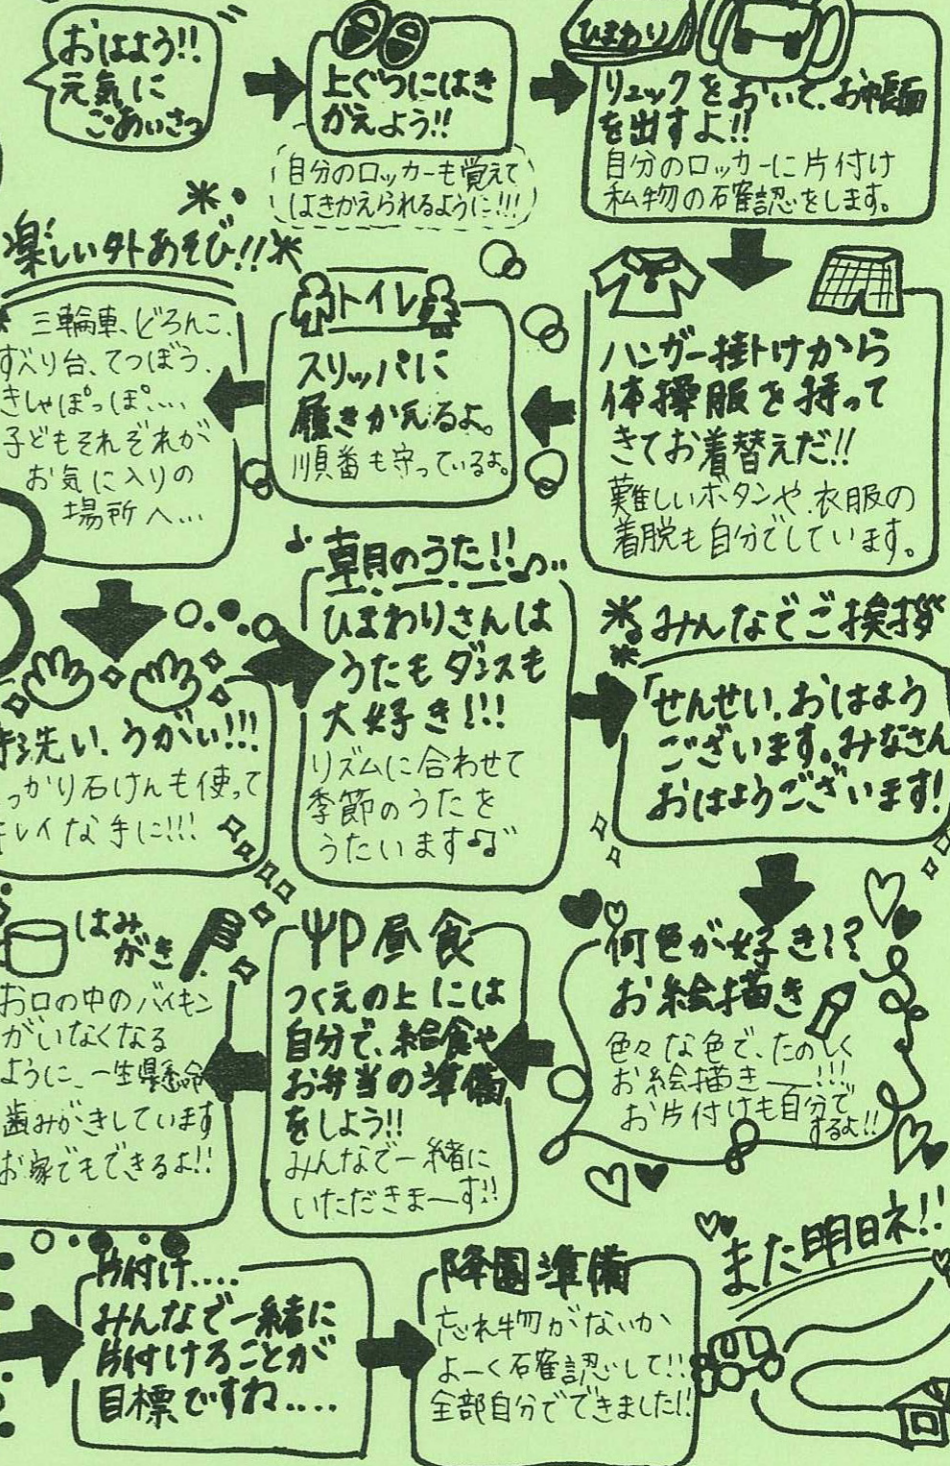 おはよう!!
元気に
ごあいさつ
上ぐつにはき
かえよう!!
自分のロッカーも覚えて
はきかえられるように!!!
ひまわり
リュックをおいて、お帳面
を出すよ!!
自分のロッカーに片付け
私物の確認をします。
ハンガー掛けから
体操服を持って
きてお着替えだ!!
難しいボタンや、衣服の
着脱も自分でしています。
トイレ
スリッパに
履きかえるよ。
順番も守っているよ。
楽しい外あそび!!
三輪車、どろんこ、
すべり台、てつぼう、
きしゃぽっぽ、...
子どもそれぞれが
お気に入りの
場所へ...
手洗い、うがい!!!
っかり石けんも使って
キレイな手に!!!
朝のうた!!
ひまわりさんは
うたもダンスも
大好き!!!
リズムに合わせて
季節のうたを
うたいます♫
みんなでご挨拶
「せんせい、おはよう
ございます。みなさん
おはようございます!
何色が好き!?
お絵描き
色々な色で、たのしく
お絵描きー!!!
お片付けも自分で
するよ!!
昼食
つくえの上には
自分で、給食や
お弁当の準備
をしよう!!
みんなで一緒に
いただきまーす!!
はみ
がき
お口の中のバイキン
がいなくなる
ように、一生懸命
歯みがきしています
お家でもできるよ!!
片付け....
みんなで一緒に
片付けることが
目標ですね....
降園準備
忘れ物がないか
よーく確認して!!
全部自分でできました!!
また明日ネ!!